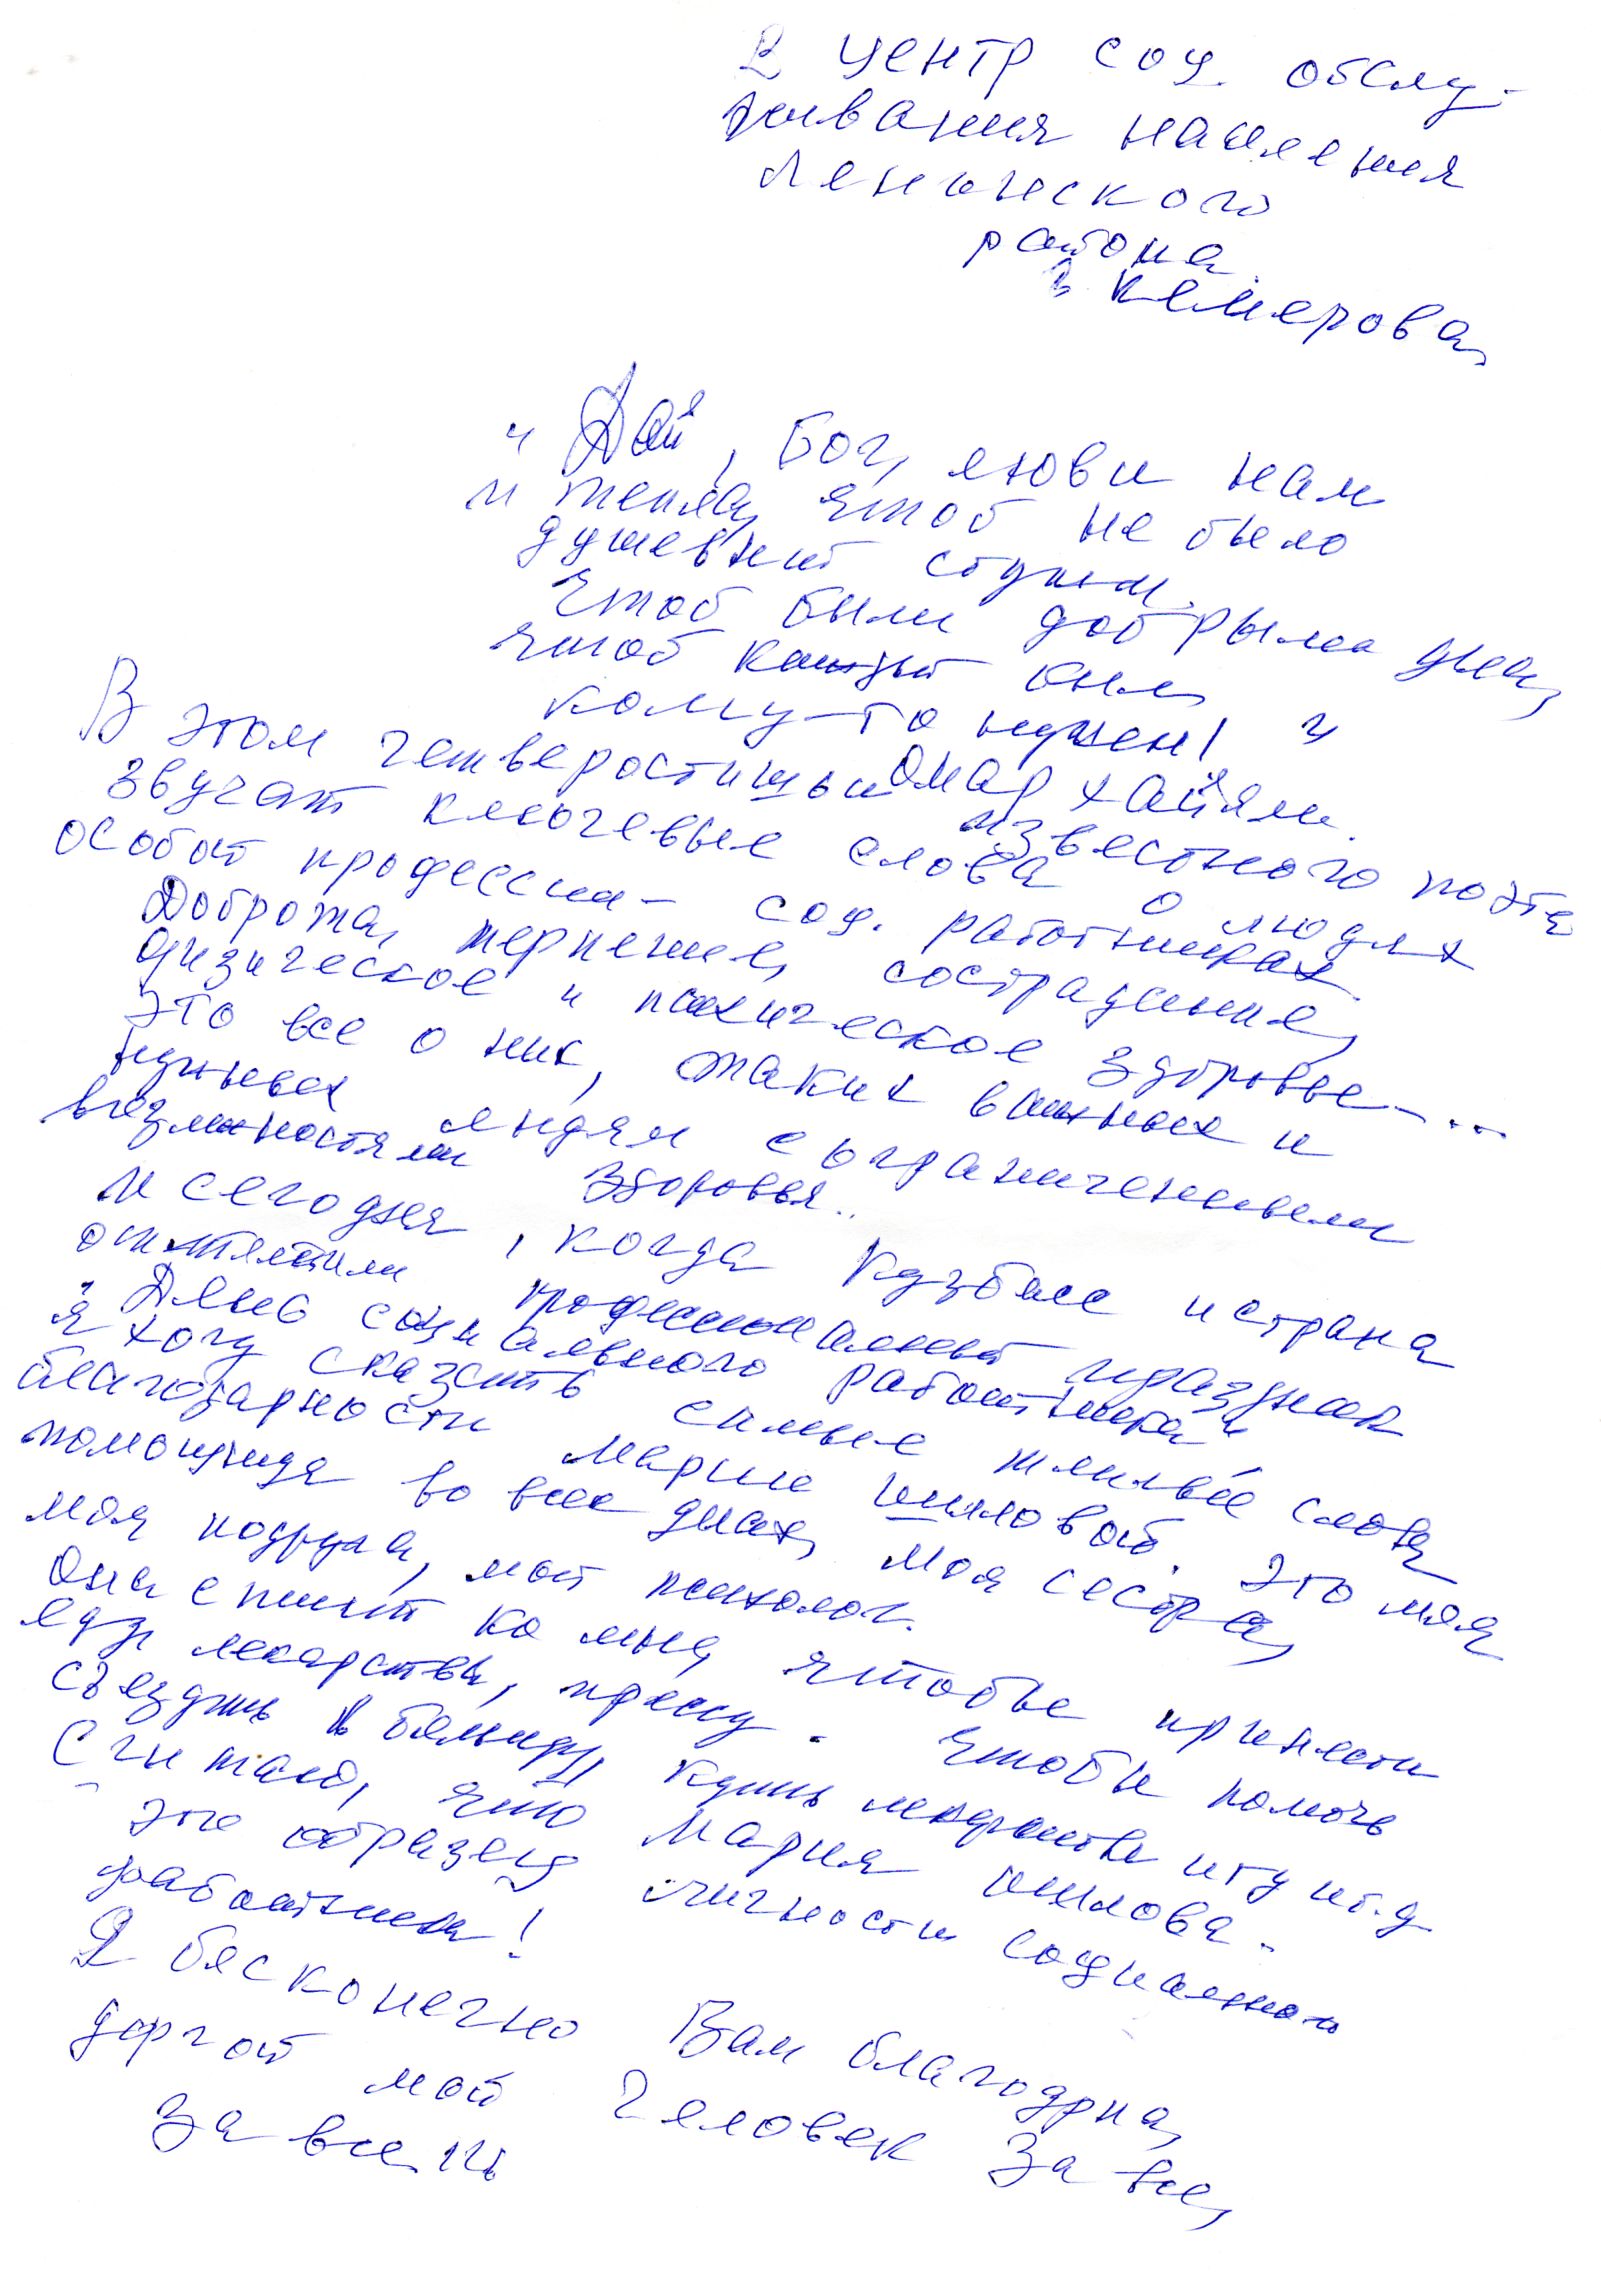 В центр соц. обслу-
живания населения
Ленинского
района
г. Кемерова,
"Дай, Бог, любви нам
и тепла, чтоб не было
душевной стужи.
Чтоб были добрыми дни,
чтоб каждый был
кому-то нужен! "
Омар Хайям.
В этом четверостишьи известного поэта
звучат ключевые слова о людях
особой профессии - соц. работниках.
Доброта, терпение, сострадание,
физическое и психическое здоровье-...
Это все о них, таких важных и
нужных людям с ограниченными
возможностями здоровья..
И сегодня, когда Кузбасс и страна
отметили профессиональный праздник
"День социального работника"
я хочу сказать самые теплые слова
благодарности Марие Шиловой. Это моя
помощница во всех делах, моя сестра,
моя подруга, мой психолог.
Она спешит ко мне, чтобы принести
еду, лекарства, прессу. Чтобы помочь
съездить в больницу, купить лекарства и ту и т.д
Считаю, что Мария Шилова.
Это образец личности социального
работника!
Я бесконечно Вам благодрна,
доргой мой человек за все,
за все !!!